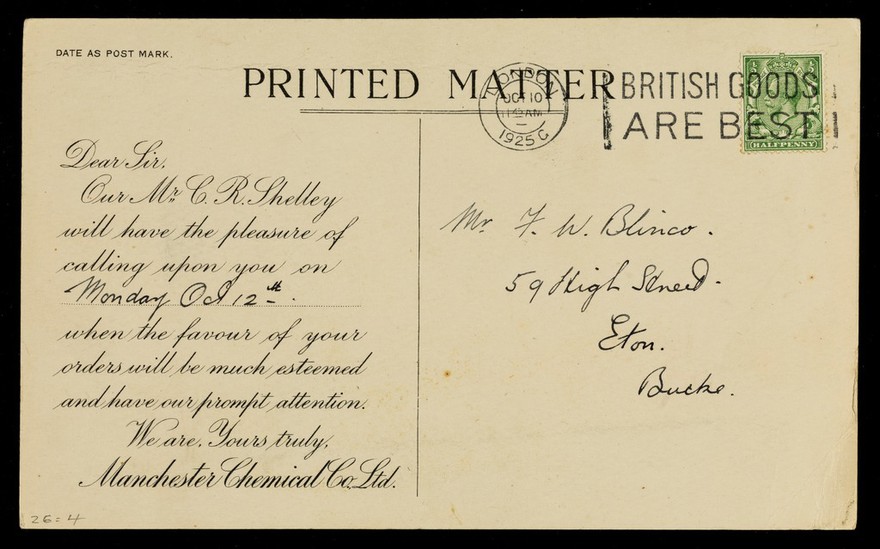 DATE AS POST MARK.
PRINTED MATTER
LONDON
OCT 10
AM
1925 C
BRITISH GOODS
ARE BEST
HALFPENNY
Dear Sir,
Our Mr. C. R. Shelley
will have the pleasure of
calling upon you on
Monday Oct 12th.
when the favour of your
orders will be much esteemed
and have our prompt attention.
We are, Yours truly,
Manchester Chemical Co. Ltd.
Mr F. W. Blinco.
59 High Street.
Eton.
Bucks.
26=4